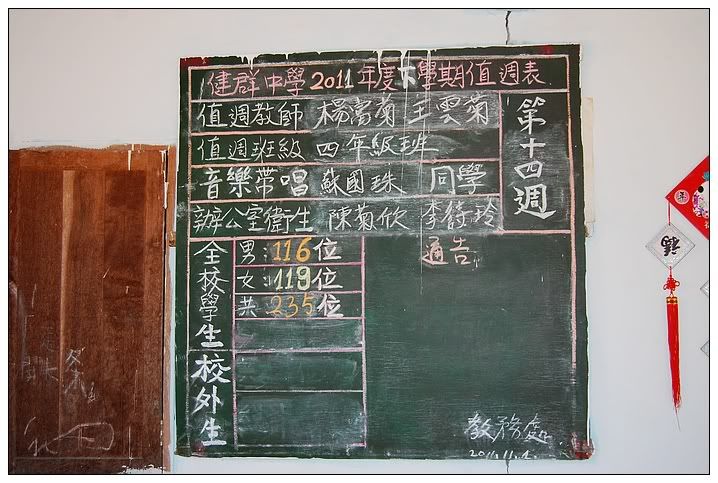 健群中學2011年度下學期值週表
值週教師 楊富菊 王雲菊
值週班級 四年級班
音樂帶唱 蘇國珠 同學
辦公室衛生 陳菊欣 李詩玲
第十四週
全校學生校外生
男:116位
女:119位
共:235位
通告
教務處
2011.11.1.